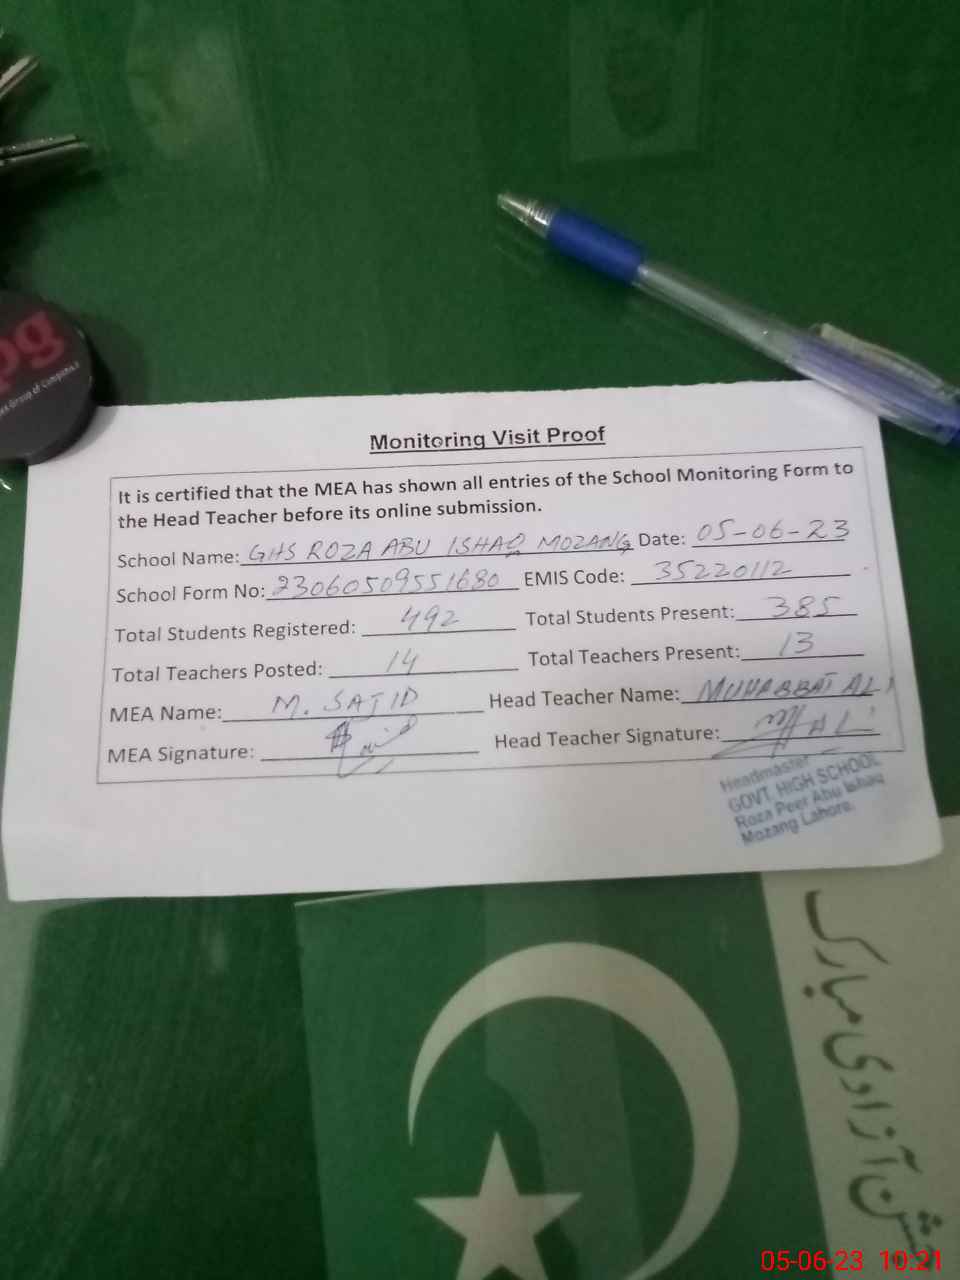 pg
Group of Companies
Monitoring Visit Proof
It is certified that the MEA has shown all entries of the School Monitoring Form to
the Head Teacher before its online submission.
School Name: GHS ROZA ABU ISHAQ MOZANG Date: 05-06-23
School Form No: 23060509551680 EMIS Code: 35220112
Total Students Registered: 492 Total Students Present: 385
Total Teachers Posted: 14 Total Teachers Present: 13
MEA Name: M. SAJID Head Teacher Name: MUHABBAT ALI
MEA Signature: Head Teacher Signature:
Headmaster
GOVT. HIGH SCHOOL
Roza Peer Abu Ishaq
Mozang Lahore.
جشن آزادی مبارک
05-06-23 10:21